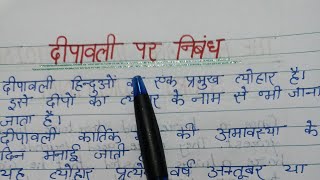 दीपावली पर निबंध
दीपावली हिन्दुओं एक प्रमुख त्योहार है।
इसे दीपों का के नाम से भी जाना
जाता है।
दीपावली कार्तिक की अमावस्या के
दिन मनाई जाती
यह त्योहार प्रत्येक वर्ष अक्तूबर या